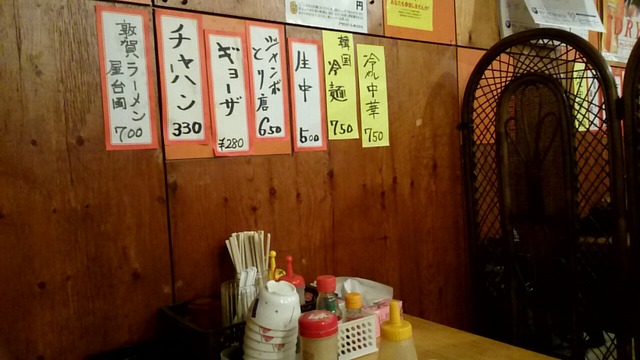 敦賀ラーメン
屋台岡
700
チャハン
330
ギョーザ
¥280
ジャンボ
とり唐
650
生中
500
韓国
冷麺
750
冷し中華
750
円